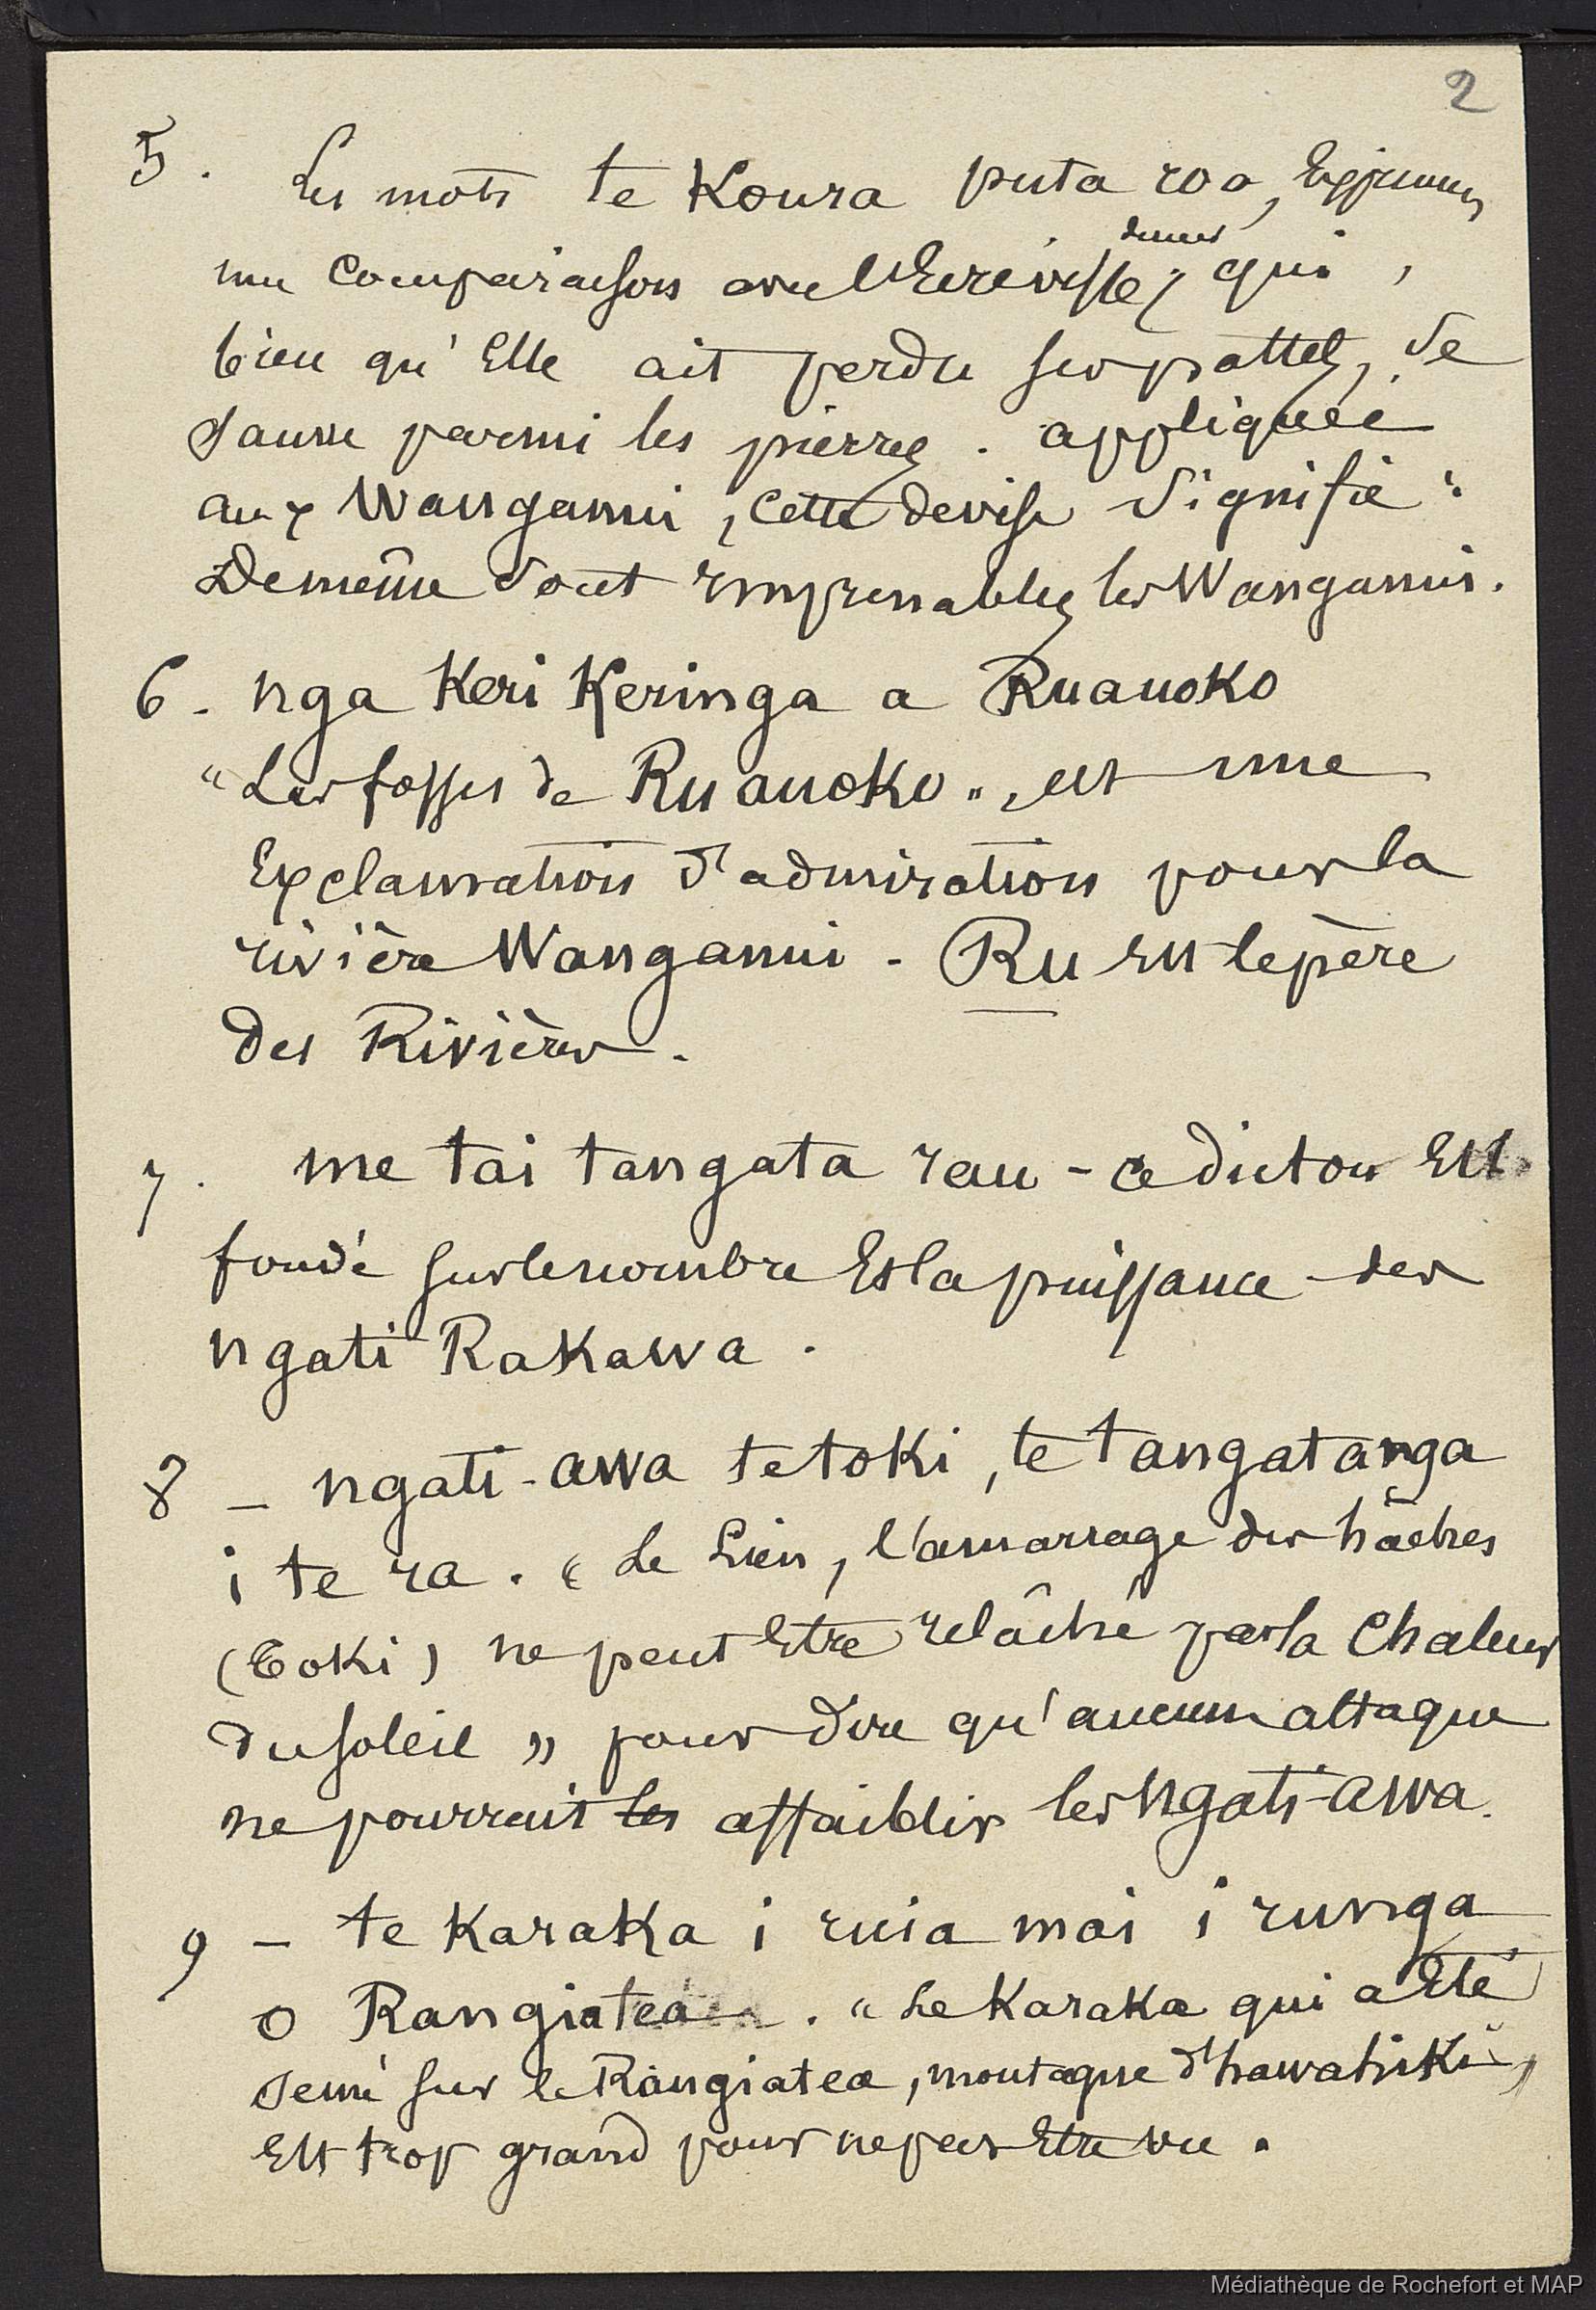 2
5. Les mots te Koura puta roa, Expriment
une comparaison avec l'Ecrevisse, qui,
bien qu'Elle ait perdu ses pattes, se
sauve parmi les pierres. appliquée
aux Wanganui, cette devise signifie :
De même sont imprenables les Wanganuis.
6. nga Keri Keringa a Ruauoko
"Les fosses de Ruauoko", est une
Exclamation d'admiration pour la
rivière Wanganui - Ru est le père
des Rivières.
7. me tai tangata rau - ce dicton Est
fondé sur le nombre Et la puissance des
ngati Rakawa.
8 - ngati-awa te toki, te tangatanga
i te ra. « Le Lien, l'amarrage des hâches
(Toki) ne peut Etre relâché par la Chaleur
du soleil » pour dire qu'aucune attaque
ne pourrait les affaiblir les ngati-awa.
9 - te Karaka i ruia mai i runga
o Rangiatea. "Le Karaka qui a Eté
semé sur le Rangiatea, montagne d'hawahiki",
Est trop grand pour ne pas Etre vu.
Médiathèque de Rochefort et MAP